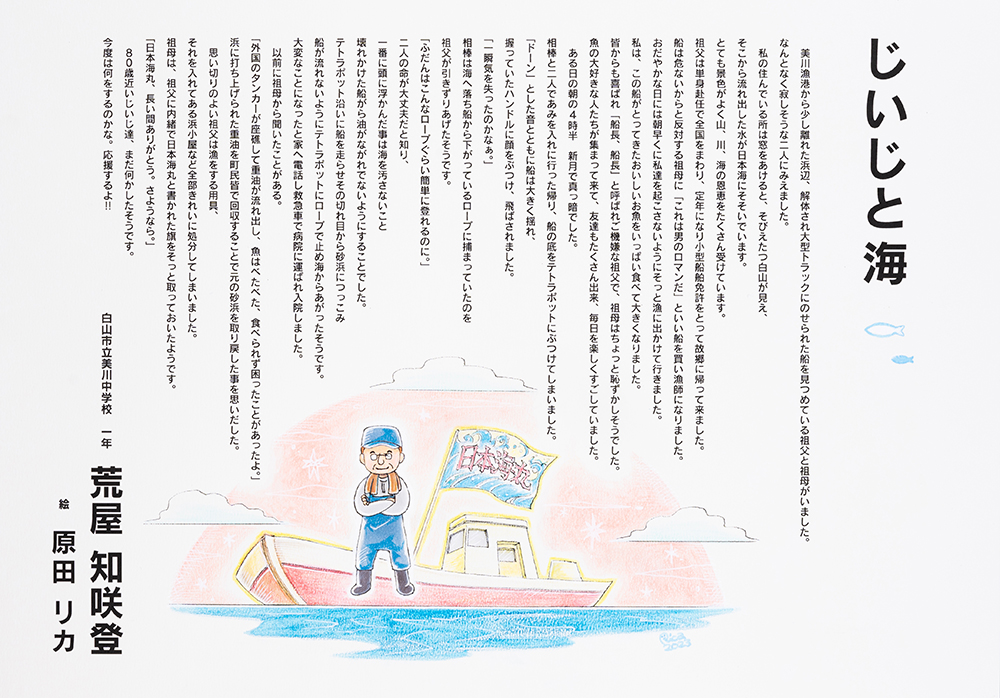 じいじと海
美川漁港から少し離れた浜辺、解体され大型トラックにのせられた船を見つめている祖父と祖母がいました。
なんとなく寂しそうな二人にみえました。
私の住んでいる所は窓をあけると、そびえたつ白山が見え、
そこから流れ出した水が日本海にそそいでいます。
とても景色がよく山、川、海の恩恵をたくさん受けています。
祖父は単身赴任で全国をまわり、定年になり小型船舶免許をとって故郷に帰って来ました。
船は危ないからと反対する祖母に「これは男のロマンだ」といい船を買い漁師になりました。
おだやかな日には朝早くに私達を起こさないようにそっと漁に出かけて行きました。
私は、この船がとってきたおいしいお魚をいっぱい食べて大きくなりました。
皆からも喜ばれ「船長、船長」と呼ばれご機嫌な祖父で、祖母はちょっと恥ずかしそうでした。
魚の大好きな人たちが集まって来て、友達もたくさん出来、毎日を楽しくすごしていました。
ある日の朝の4時半 新月で真っ暗でした。
相棒と二人であみを入れに行った帰り、船の底をテトラポットにぶつけてしまいました。
「ドーン」とした音とともに船は大きく揺れ、
握っていたハンドルに顔をぶつけ、飛ばされました。
「一瞬気を失つたのかなぁ。」
相棒は海へ落ち船から下がっているロープに捕まっていたのを
祖父が引きずりあげたそうです。
「ふだんはこんなロープくらい簡単に登れるのに。」
二人の命が大丈夫だと知り、
一番に頭に浮かんだ事は海を汚さないこと
壊れかけた船から油がながれでないようにすることでした。
テトラポット沿いに船を走らせその切れ目から砂浜につっこみ
船が流れないようにテトラポットにロープで止め海からあがったそうです。
大変なことになったと家へ電話し救急車で病院に運ばれ入院しました。
以前に祖母から聞いたことがある。
「外国のタンカーが座礁して重油が流れ出し、魚はべたべた、食べられず困ったことがあったよ。」
浜に打ち上げられた重油を町民皆で回収することで元の砂浜を取り戻した事を思いだした。
思い切りのよい祖父は漁をする用具、
それを入れてある浜小屋など全部きれいに処分してしまいました。
祖母は、祖父に内緒で日本海丸と書かれた旗をそっと取っておいたようです。
「日本海丸、長い間ありがとう。さようなら。」
80歳近いじいじ達、まだ何かしたそうです。
今度は何をするのかな。応援するよ!!
白山市立美川中学校 一年 荒屋 知咲登
絵 原田 リカ
日本海丸